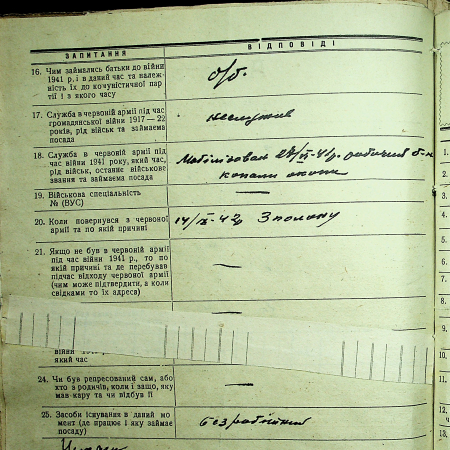 ЗАПИТАННЯ
ВІДПОВІДІ
16. Чим займались батьки до війни
1941 р. і в даний час та належ-
ність їх до комуністичної пар
тії і з якого часу
б/п.
17. Служба в червоній армії під час
громадянської війни 1917—22
років, рід військ та займаема
посада
неслужив
18. Служба в червоній армії під
час війни 1941 року, який час,
рід військ, останнє військове
звання та займаема посада
Мобілізован робочий б-н
копали окопи
19. Військова спеціальність
№ (ВУС)
20. Коли повернувся з червоної
армії та по якій причині
З полону
21. Якщо не був в червоній армії
під час війни 1941 р., то по
якій причині та де перебував
підчас відходу червоної армії
(чим може підтвердити, а коли
свідками то їх адреса)
—
який час
24. Чи був репресований сам, або
хто з родичів, коли і защо, яку
мав кару та чи відбув її
—
25. Засоби існування в даний мо
мент (де працює і яку займає
посаду)
безробітний
1.
2.
3.
4.
5.
6.
7.
8.
9.
10.
11.
12.
13.